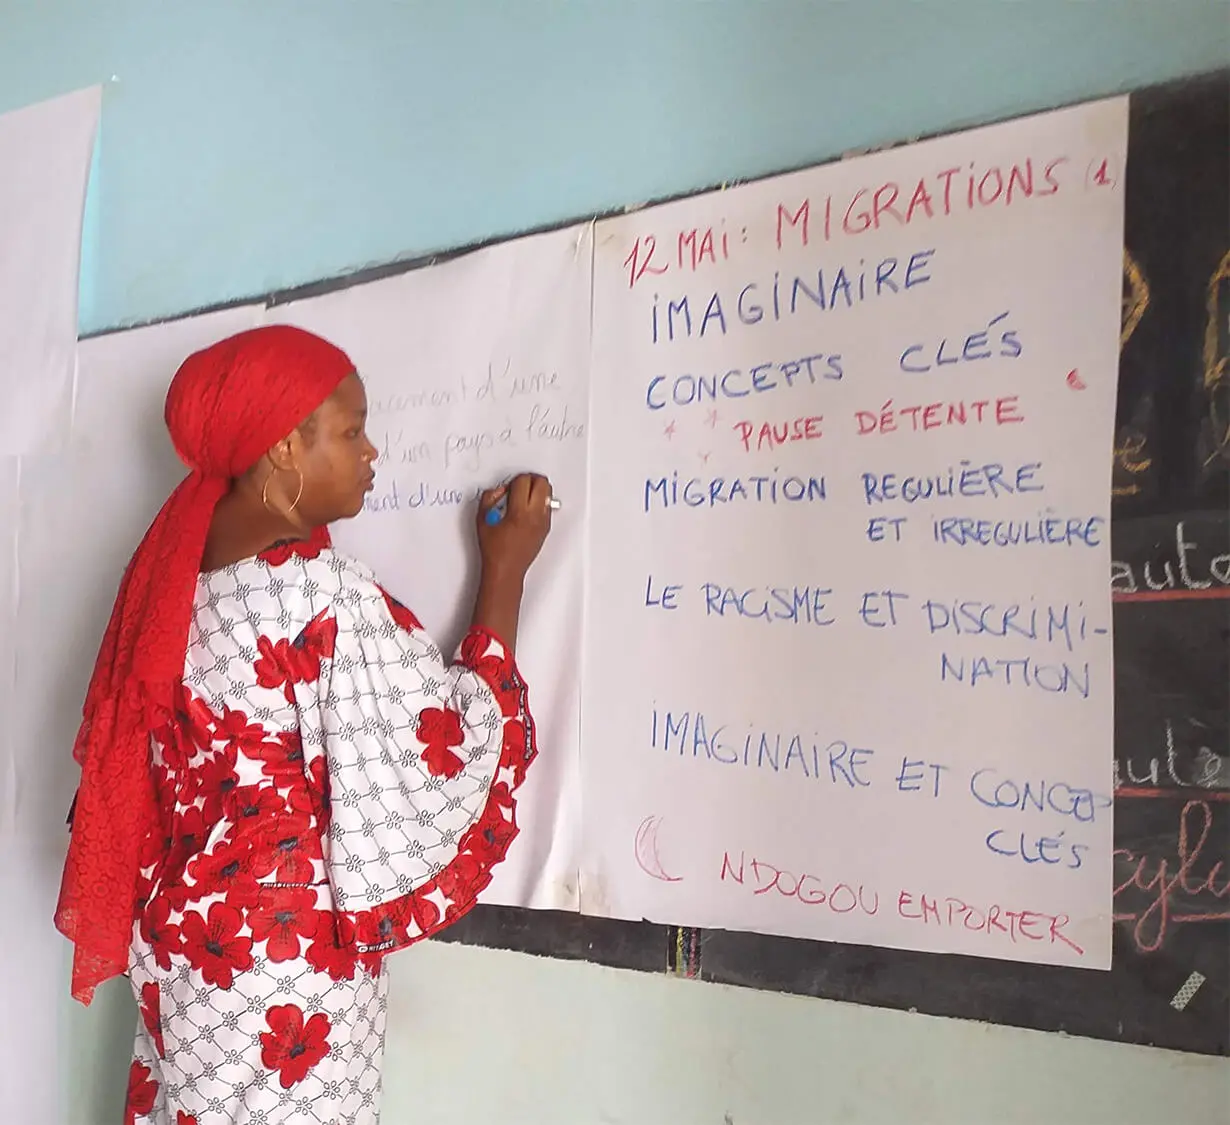 d'une
d'un pays à l'autre
d'une
12 MAi: MIGRATiONS (1)
iMAGiNAiRE
CONCEPTS CLÉS
PAUSE DÉTENTE
MiGRATION REGULIÈRE
ET IRREGULIÈRE
LE RACiSME ET DISCRiMi-
NATION
IMAGiNAiRE ET CONCEP
CLÉS
NDOGOU EMPORTER